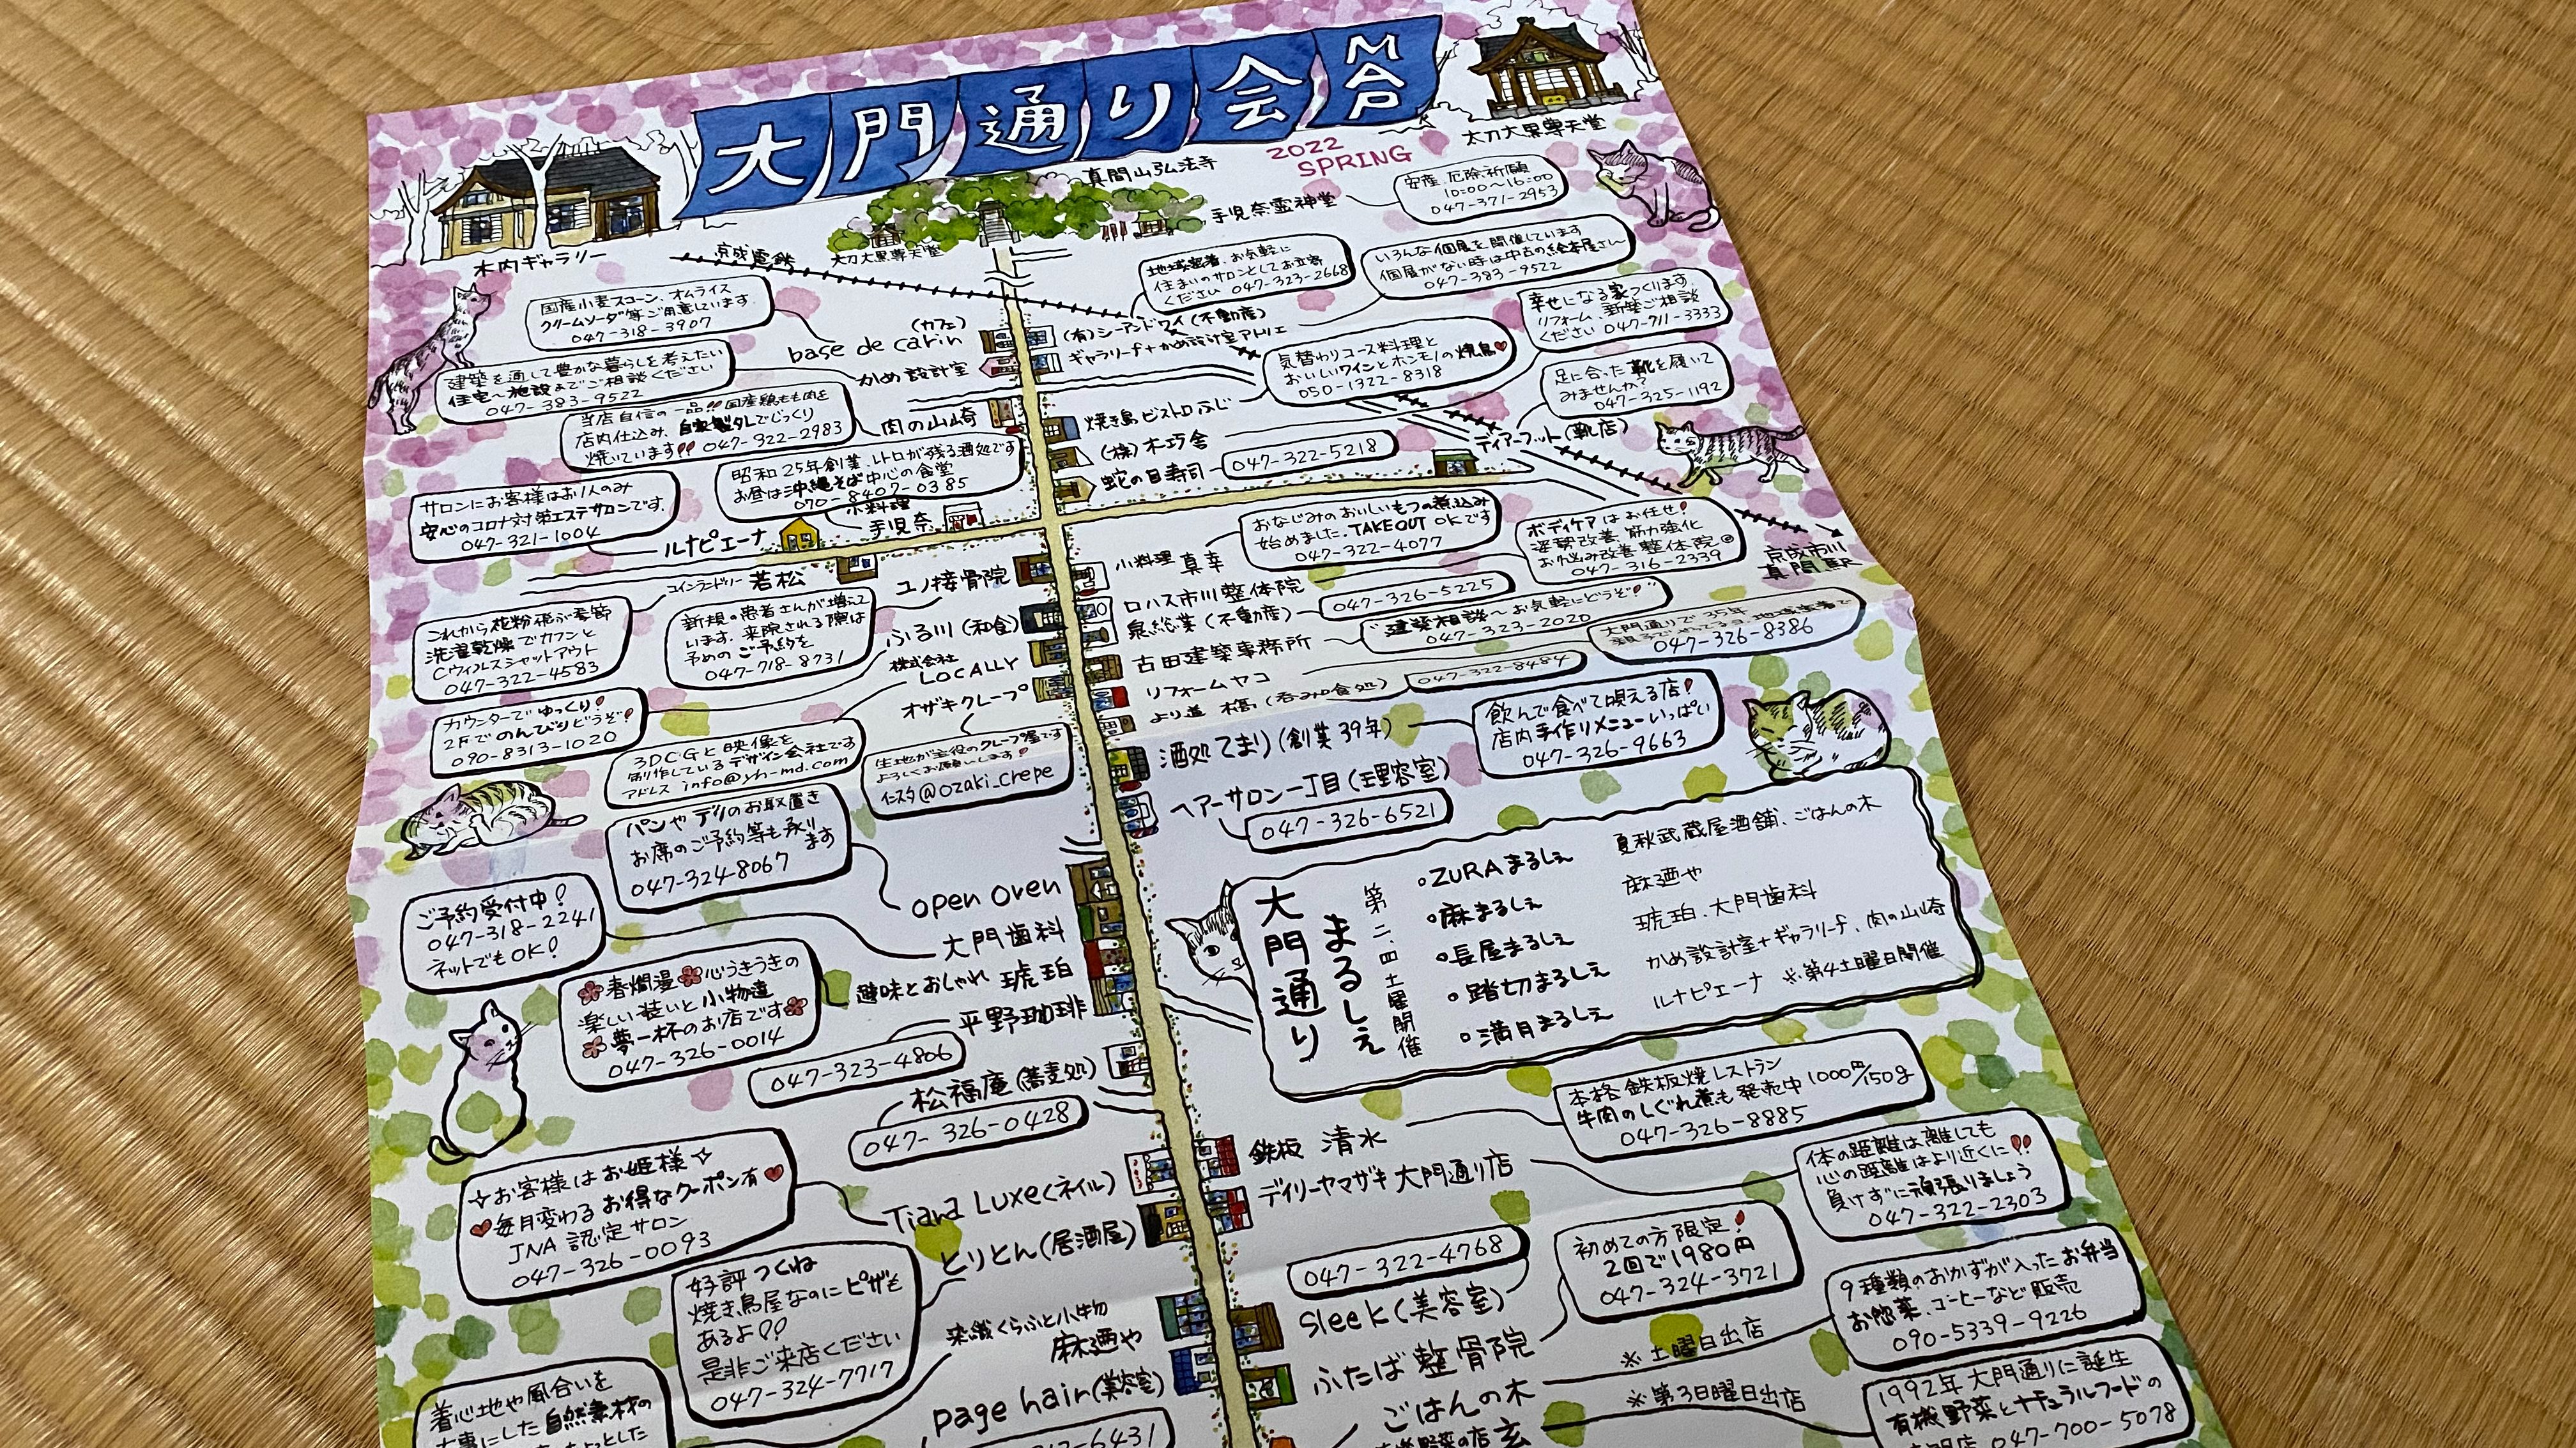 大門通り会 MAP
2022
SPRING
太刀大黒尊天堂
木内ギャラリー
真間山弘法寺
手児奈霊神堂
安産、厄除祈願
10:00〜16:00
047-371-2953
太刀大黒尊天堂
京成電鉄
国産小麦スコーン、オムライス
クリームソーダ等ご用意しています
047-318-3907
(カフェ)
base de carin
地域密着、お気軽に
住まいのサロンとしてお立寄
ください 047-323-2668
(有)シーアンドワイ(不動産)
いろんな個展を開催しています
個展がない時は中古の絵本屋さん
047-383-9522
ギャラリーf+かめ設計室アトリエ
建築を通して豊かな暮らしを考えたい
住宅〜施設までご相談ください
047-383-9522
かめ設計室
幸せになる家つくります
リフォーム、新築ご相談
ください 047-711-3333
気替わりコース料理と
おいしいワインとホンモノの焼鳥
050-1322-8318
焼き鳥ビストロふじ
当店自信の一品!!国産鶏もも肉を
店内仕込み、自家製タレでじっくり
焼いています!! 047-322-2983
肉の山崎
(株)木巧舎
足に合った靴を履いて
みませんか?
047-325-1192
ディアーフット(靴店)
蛇の目寿司
047-322-5218
昭和25年創業、レトロが残る酒処です
お昼は沖縄そば中心の食堂
070-8407-0385
小料理
手児奈
サロンにお客様はお1人のみ
安心のコロナ対策エステサロンです。
047-321-1004
ルナピエーナ
コインランドリー 若松
これから花粉飛ぶ季節
洗濯乾燥でカフンと
Cウィルスシャットアウト
047-322-4583
ユノ接骨院
新規の患者さんが増えて
います。来院される際は
予めのご予約を
047-718-8731
おなじみのおいしいもつの煮込み
始めました。TAKEOUT OKです
047-322-4077
小料理 真幸
ボディケアはお任せ!
姿勢改善 筋力強化
お悩み改善整体院
047-316-2339
ロハス市川整体院
京成市川
真間駅
047-326-5225
泉総業(不動産)
"建築相談〜お気軽にどうぞ!"
047-323-2020
古田建築事務所
大門通りで35年
047-326-8386
リフォームヤコ
047-322-8484
より道 橘(呑み食処)
ふる川(和食)
カウンターでゆっくり!
2Fでのんびりどうぞ!
090-8313-1020
株式会社
LOCALLY
3DCGと映像を
制作しているデザイン会社です
アドレス info@yh-md.com
オザキクレープ
生地が主役のクレープ屋です
よろしくお願いします!
インスタ@ozaki_crepe
酒処てまり(創業39年)
飲んで食べて唄える店!
店内手作りメニューいっぱい
047-326-9663
ヘアーサロン一丁目(理容室)
047-326-6521
パンやデリのお取置き
お席のご予約等も承り
ます
047-324-8067
open oven
ご予約受付中!
047-318-2241
ネットでもOK!
大門歯科
春爛漫 心うきうきの
楽しい装いと小物達
夢一杯のお店です
047-326-0014
趣味とおしゃれ 琥珀
平野珈琲
047-323-4806
松福庵(蕎麦処)
047-326-0428
大門通り
まるしぇ
第二、四土曜開催
・ZURAまるしぇ
夏秋武蔵屋酒舗、ごはんの木
・麻まるしぇ
麻洒や
・長屋まるしぇ
琥珀、大門歯科
・踏切まるしぇ
かめ設計室+ギャラリーf、肉の山崎
・満月まるしぇ
ルナピエーナ ※第4土曜日開催
本格鉄板焼レストラン
牛肉のしぐれ煮も発売中 1000円/150g
047-326-8885
鉄板 清水
体の距離は離しても
心の距離はより近くに!!
負けずに頑張りましょう
047-322-2303
デイリーヤマザキ 大門通り店
お客様はお姫様
毎月変わるお得なクーポン有
JNA認定サロン
047-326-0093
Tiara Luxe(ネイル)
とりとん(居酒屋)
好評つくね
焼き鳥屋なのにピザも
あるよ!!
是非ご来店ください
047-324-7717
047-322-4768
sleek(美容室)
初めての方限定!
2回で1980円
047-324-3721
ふたば整骨院
9種類のおかずが入ったお弁当
お惣菜、コーヒーなど販売
090-5339-9226
※土曜日出店
ごはんの木
※第3日曜日出店
1992年大門通りに誕生
有機野菜とナチュラルフードの
047-700-5078
染織くらふと小物
麻洒や
着心地や風合いを
大事にした自然素材の
page hair(美容室)
6431